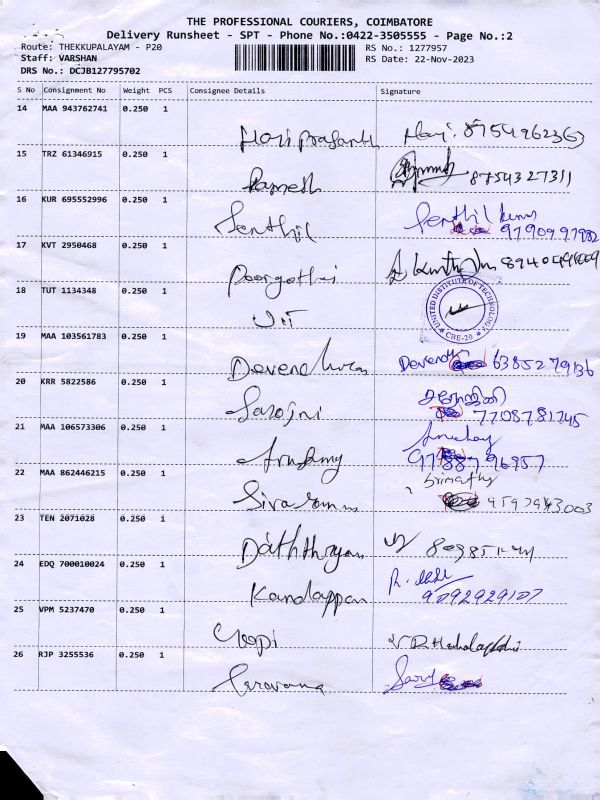 THE PROFESSIONAL COURIERS, COIMBATORE
Delivery Runsheet - SPT - Phone No.:0422-3505555 - Page No.:2
Route: THEKKUPALAYAM - P20 RS No.: 1277957
Staff: VARSHAN RS Date: 22-Nov-2023
DRS No.: DCJB127795702
S No Consignment No Weight PCS Consignee Details Signature
14 MAA 943762741 0.250 1
Hari prasanth Hari. 8754962363
15 TRZ 61346915 0.250 1
Ramesh 8754327311
16 KUR 695552996 0.250 1
Senthil Senthil kumar
9790997982
17 KVT 2950468 0.250 1
18 TUT 1134348 0.250 1
UIT
UNITED INSTITUTE OF TECHNOLOGY
CBE-20
19 MAA 103561783 0.250 1
Devendiran Devendi 6385279136
20 KRR 5822586 0.250 1
Sarojni சரோஜினி
7708781745
21 MAA 106573306 0.250 1
22 MAA 862446215 0.250 1
23 TEN 2071028 0.250 1
24 EDQ 700010024 0.250 1
Kandappan 9092929107
25 VPM 5237470 0.250 1
Gopi
26 RJP 3255536 0.250 1
Saravana